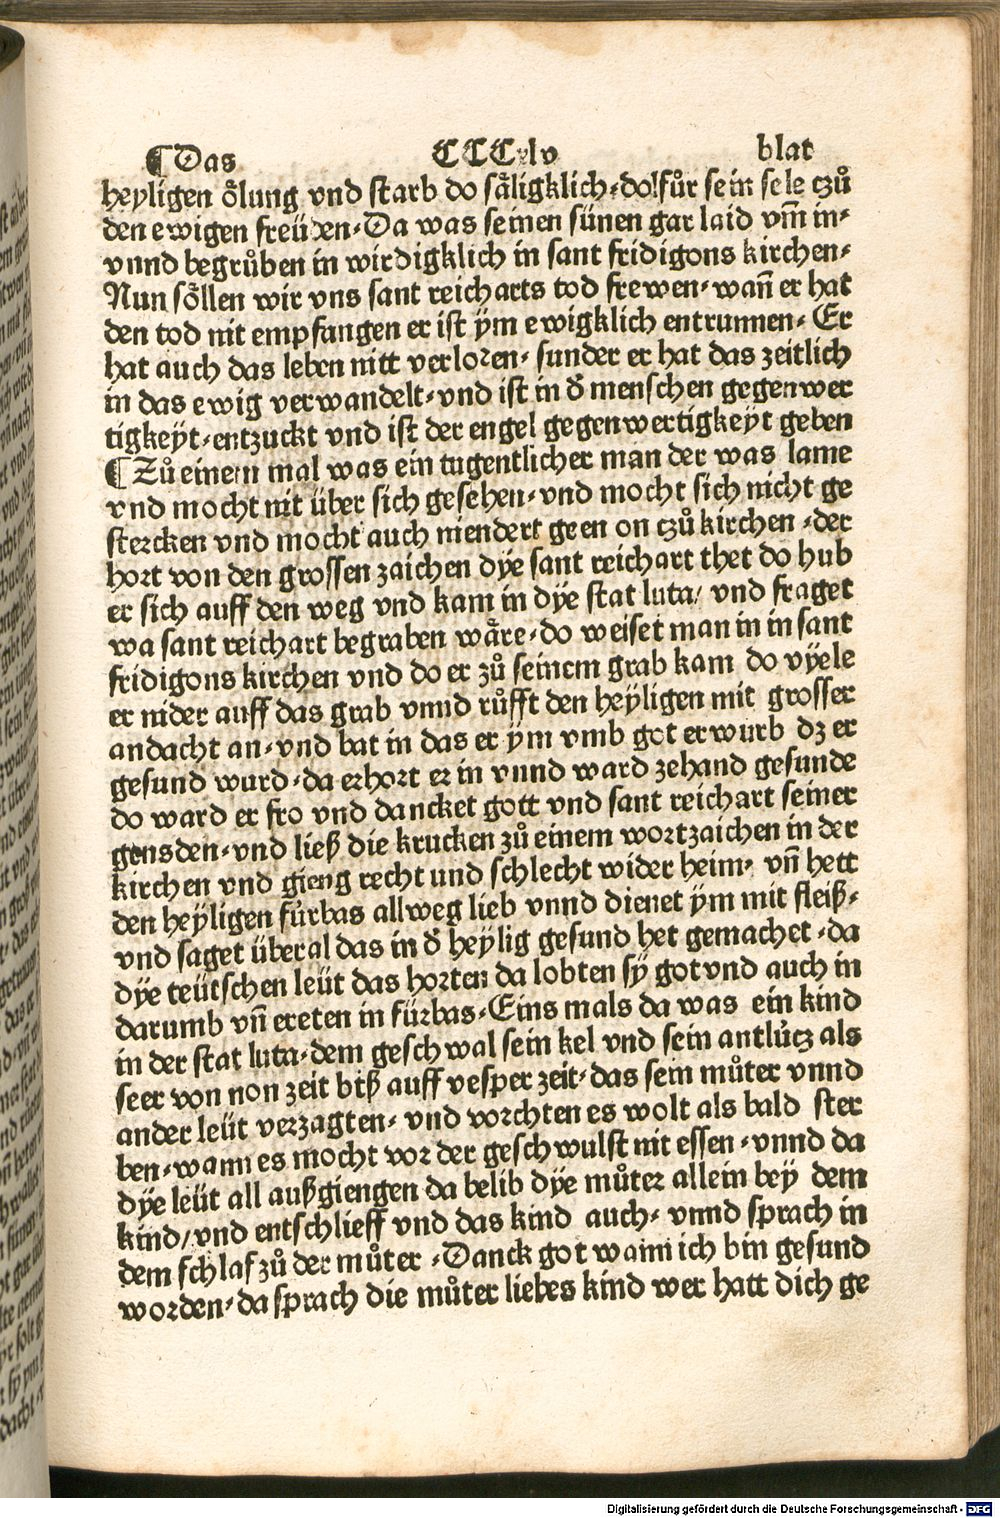 ¶Das CCCxlv blat
heyligen oͤlung vnd starb do saͤligklich⸗do!fuͦr sein sele tzuͦ
den ewigen freüden⸗Da was seinen sünen gar laid vm̄ in⸗
vnnd begruͦben in wirdigklich in sant fridigons kirchen⸗
Nun soͤllen wir vns sant reicharts tod frewen⸗wann̄ er hat
den tod nit empfangen er ist ÿm ewigklich entrunnen⸗ Er
hat auch das leben nitt verloren⸗ sunder er hat das zeitlich
in das ewig verwandelt⸗vnd ist in d̕ menschen gegenwer
tigkeÿt⸗entzuckt vnd ist der engel gegenwertigkeÿt geben
¶Zuͦ einem mal was ein tugentlicher man der was lame
vnd mocht nit über sich gesehen⸗vnd mocht sich nicht ge
stercken vnd mocht auch niendert geen on tzuͦ kirchen ⸗der
hort von den grossen zaichen dÿe sant reichart thet do hub
er sich auff den weg vnd kam in dÿe stat luta/ vnd fraget
wa sant reichart begraben waͤre⸗do weiset man in in sant
fridigons kirchen vnd do er zuͦ seinem grab kam do vÿele
er nider auff das grab vnnd ruͦfft den heÿligen mit grosser
andacht an⸗vnd bat in das er ÿm vmb got erwurb dz er
gesund wurd⸗da erhort er in vnnd ward zehand gesunde
do ward er fro vnd dancket gott vnd sant reichart seiner
gensden⸗vnd ließ die krucken zuͦ einem wortzaichen in der
kirchen vnd gieng recht und schlecht wider heim⸗ vn̄ hett
den heÿligen fuͦrbas allweg lieb vnnd dienet ÿm mit fleiß⸗
vnd saget überal das in d̕ heÿlig gesund het gemachet ⸗da
dÿe teütschen leüt das horten da lobten sÿ got vnd auch in
darumb vn̄ ereten in fürbas⸗Eins mals da was ein kind
in der stat luta⸗dem geschwal sein kel vnd sein antluͦtz als
seer von non zeit biß auff vesper zeit⸗das sein muͦter vnnd
ander leüt verzagten⸗ vnd vorchten es wolt als bald ster
ben⸗wann es mocht vor der geschwulst nit essen ⸗vnnd da
dÿe leüt all außgiengen da belib dÿe muͦter allein beÿ dem
kind/vnd entschlieff vnd das kind auch⸗ vnnd sprach in
dem schlaf zuͦ der muͦter ⸗Danck got wann ich bin gesund
worden⸗da sprach die muͦter liebes kind wer hatt dich ge
Digitalisierung gefördert durch die Deutsche Forschungsgemeinschaft - DFG